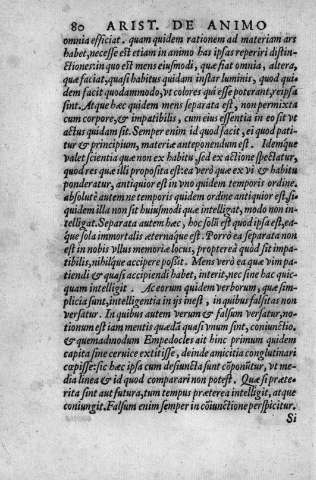 80 ARIST. DE ANIMO
omnia efficiat. quam quidem rationem ad materiam ars
habet, necesse est etiam in animo has ipsas reperiri distin-
ctiones: in quo est mens eiusmodi, quæ fiat omnia, altera,
quæ faciat, quasi habitus quidam instar luminis, quod qui-
dem facit quodammodo, vt colores qui esse poterant, reipsa
sint. Atque hæc quidem mens separata est, non permixta
cum corpore, & impatibilis, cum eius essentia in eo sit vt
actus quidam sit. Semper enim id quod facit, ei quod pati-
tur & principium, materiæ anteponendum est. Idemque
valet scientia quæ non ex habitu, sed ex actione spectatur,
quod res quæ illi proposita est: ea verò quæ ex vi & habitu
ponderatur, antiquior est in vno quidem temporis ordine.
absolutè autem ne temporis quidem ordine antiquior est, si-
quidem illa non sit huiusmodi quæ intelligat, modò non in-
telligat. Separata autem hæc, hoc solũ est quod ipsa est, ea-
que sola immortalis æternaque est. Porrò ea separata non
est in nobis vllus memoriæ locus, propterea quòd sit impa-
tibilis, nihilque accipere possit. Mens verò ea quæ vim pa-
tiendi & quasi accipiendi habet, interit, nec sine hac quic-
quam intelligit. Ac eorum quidem verborum, quæ sim-
plicia sunt, intelligentia in ijs inest, in quibus falsitas non
versatur. In quibus autem verum & falsum versatur, no-
tionum est iam mentis quædã quasi vnum sint, coniunctio,
& quemadmodum Empedocles ait hinc primum quidem
capita sine ceruice extitisse, deinde amicitia conglutinari
cœpisse: sic hæc ipsa cum desiuncta sunt cõponũtur, vt me-
dia linea & id quod comparari non potest. Quæ si præte-
rita sint aut futura, tum tempus præterea intelligit, atque
coniungit. Falsum enim semper in cõiunctione perspicitur.
Si